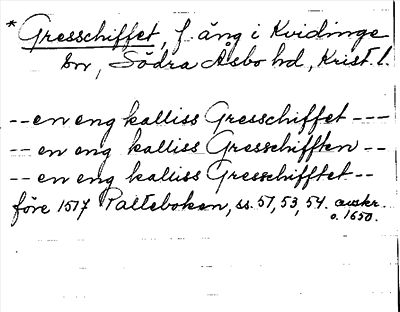 * Gresschiffet, f. äng i Kvidinge
sn, Södra Åsbo hd, Krist. l.
-- en eng kalliss Gresschiffet ---
-- en eng kalliss Gresschifften --
-- en eng kalliss Gresschifftet --
före 1517 Palteboken, ss. 57, 53, 54. avskr.
o. 1650.